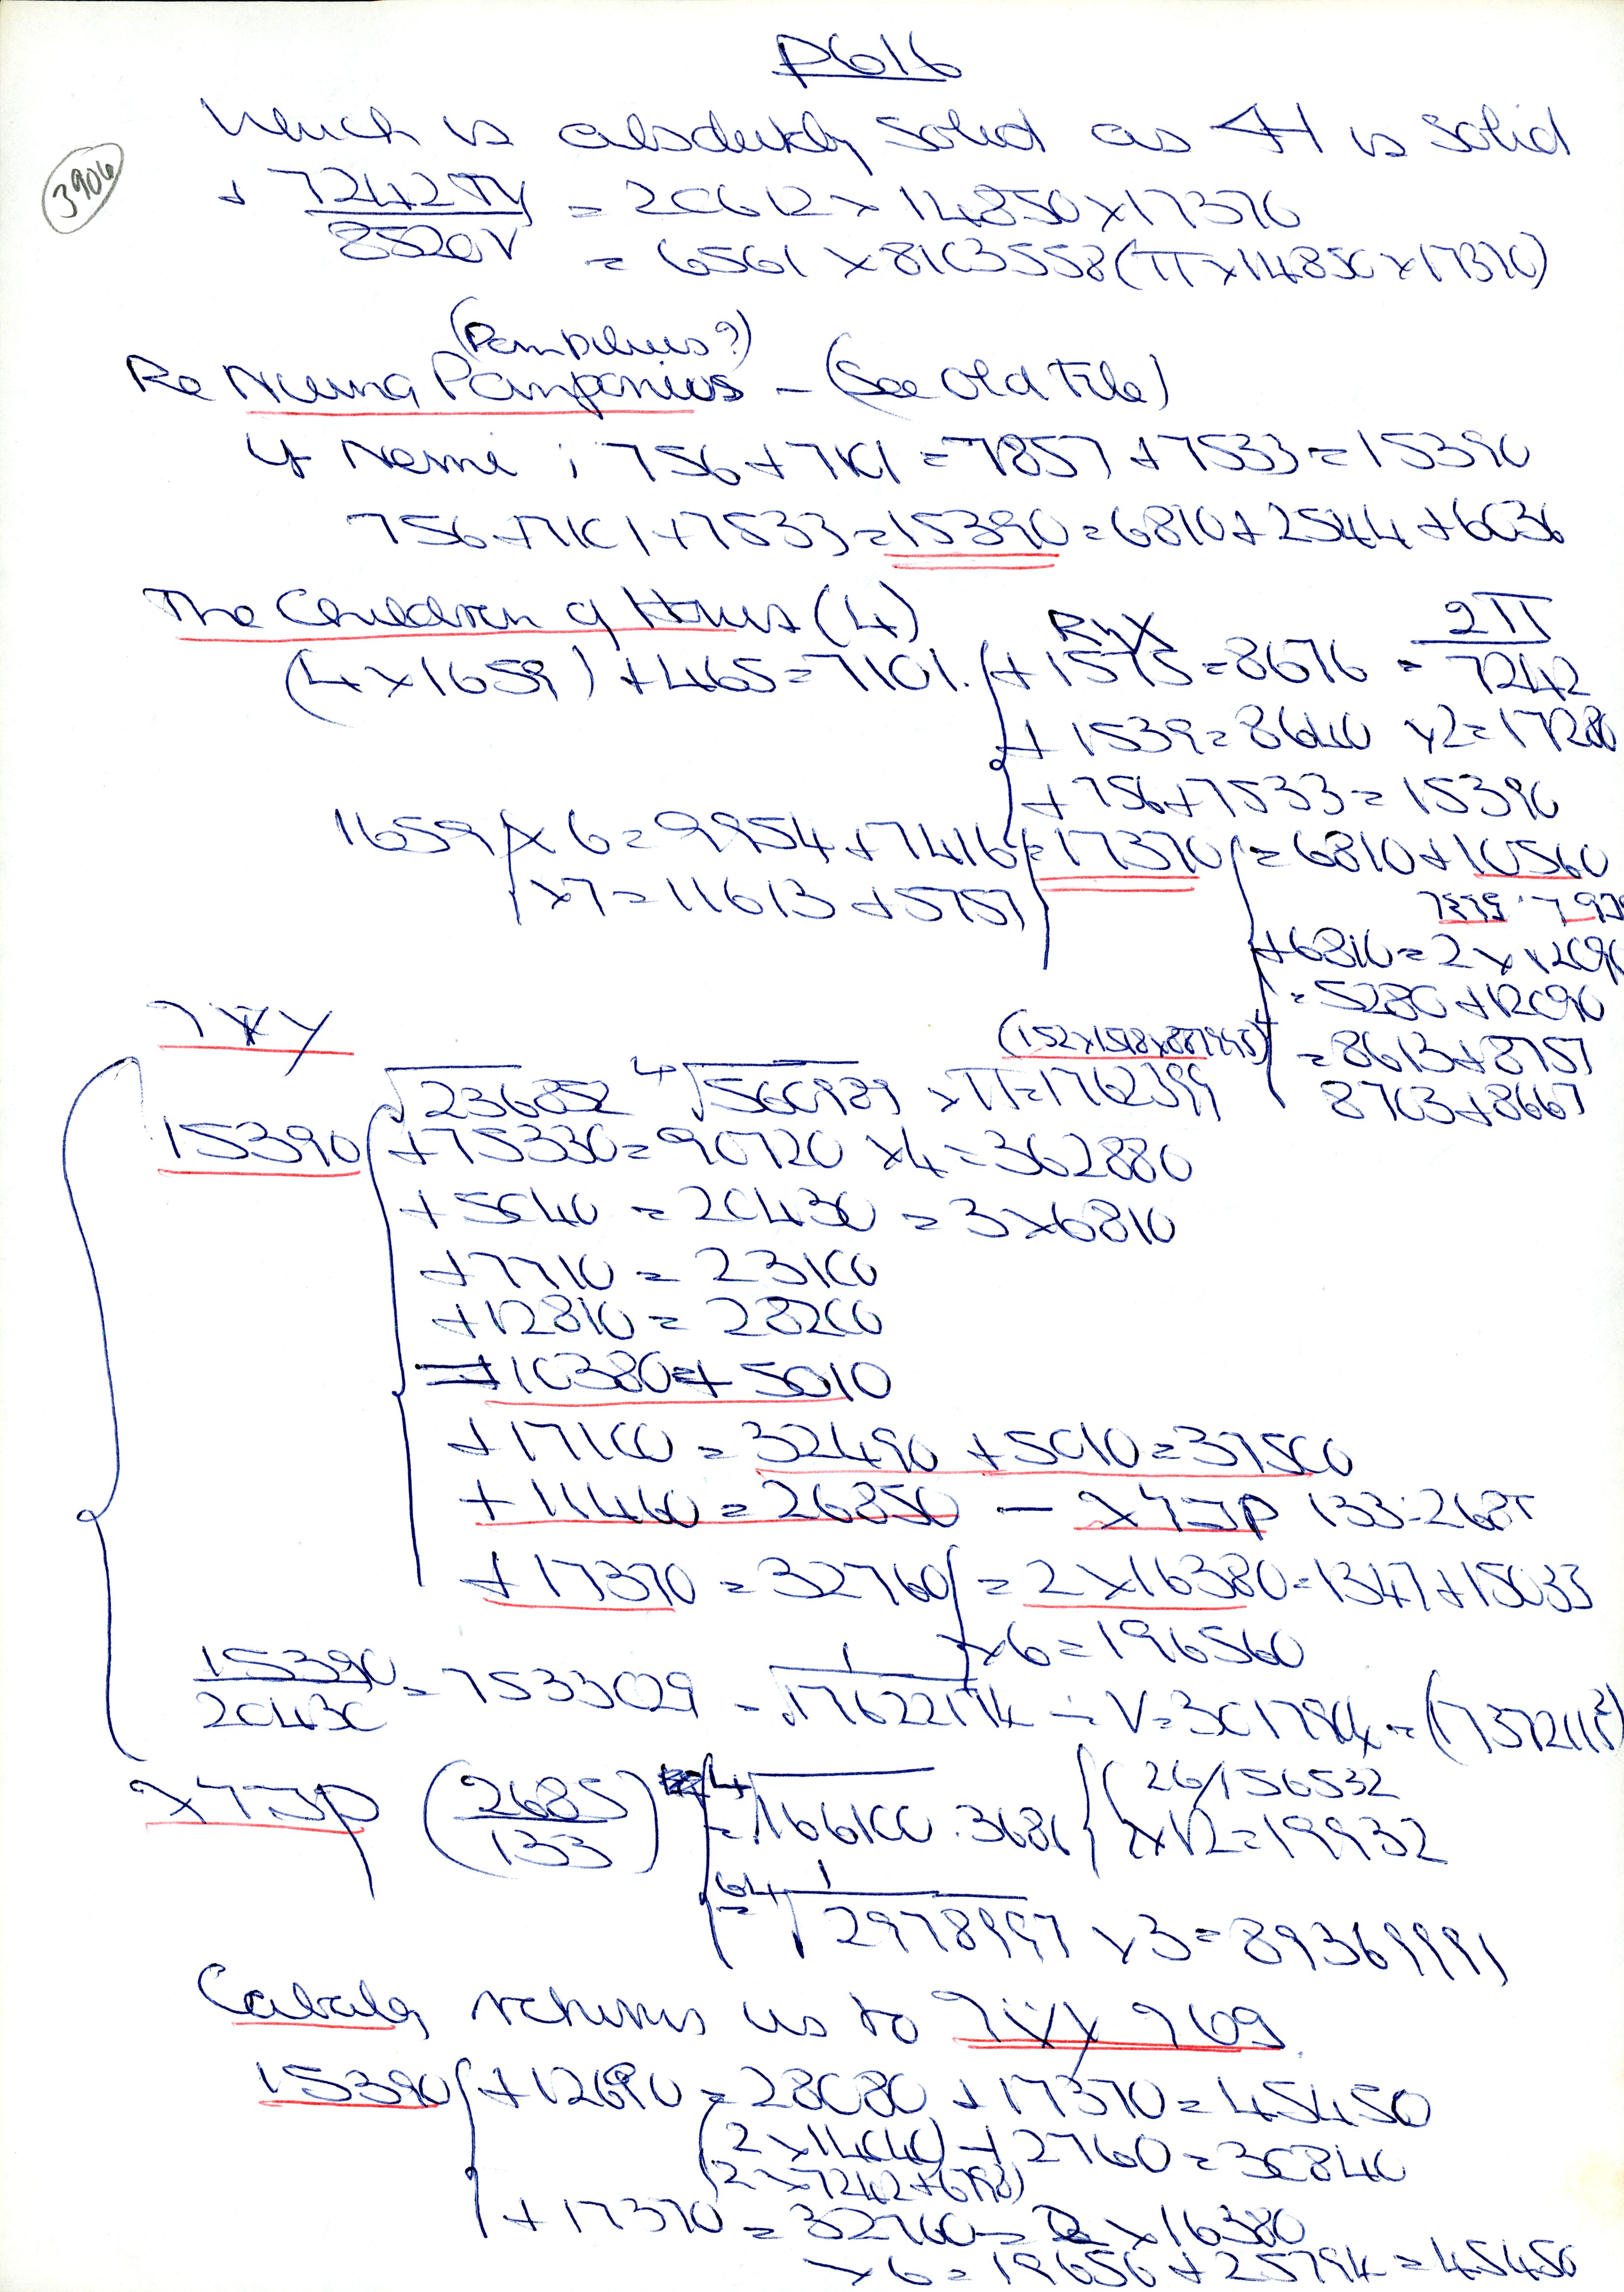 P616
3906
Which is absolutely solid as 4H is solid
+ 7242π/y / 8520V = 20612 × 14850 × 17370
= 6561 × 8103558 (π × 14850 × 17370)
(Pompilius?)
Re Numa Pomponius - (See Old File)
If Name : 756 + 7101 = 7857 + 7533 = 15390
756 + 7101 + 7533 = 15390 = 6810 + 2544 + 6036
The Children of Horus (4)
(4 × 1659) + 465 = 7101. + 1575 = 8676 = 2π / 7242
+ 1539 = 8640 × 2 = 17280
+ 756 + 7533 = 15390
1659 × 6 = 9954 + 7416 = 17370 = 6810 + 10560
× 7 = 11613 + 5757
+ 6810 = 2 × 12090
= 5280 + 12090
= 8613 + 8757
8703 + 8667
√236852 ⁴√560989 × π = 1762399
15390 + 75330 = 90720 × 4 = 362880
+ 5040 = 20430 = 3 × 6810
+ 7710 = 23100
+ 12810 = 28200
10380 + 5010
+ 17100 = 32490 + 5010 = 37500
+ 11460 = 26850 - 133:2685
+ 17370 = 32760 = 2 × 16380 = 1347 + 15033
× 6 = 196560
15390 / 20430 = 7533029 = 1 / √17622174 ÷ V = 301784
(2685 / 133) = ⁴√166100.3686 26/156532
× 12 = 19932
= ⁶⁴√ 1 / 2978997 × 3 = 89369991
Cabala returns us to 769
15390 + 12690 = 28080 + 17370 = 45450
(2 × 14040) + 2760 = 30840
(2 × 7242 + 6798)
+ 17370 = 32760 = 2 × 16380
× 6 = 19656 + 25794 = 45450